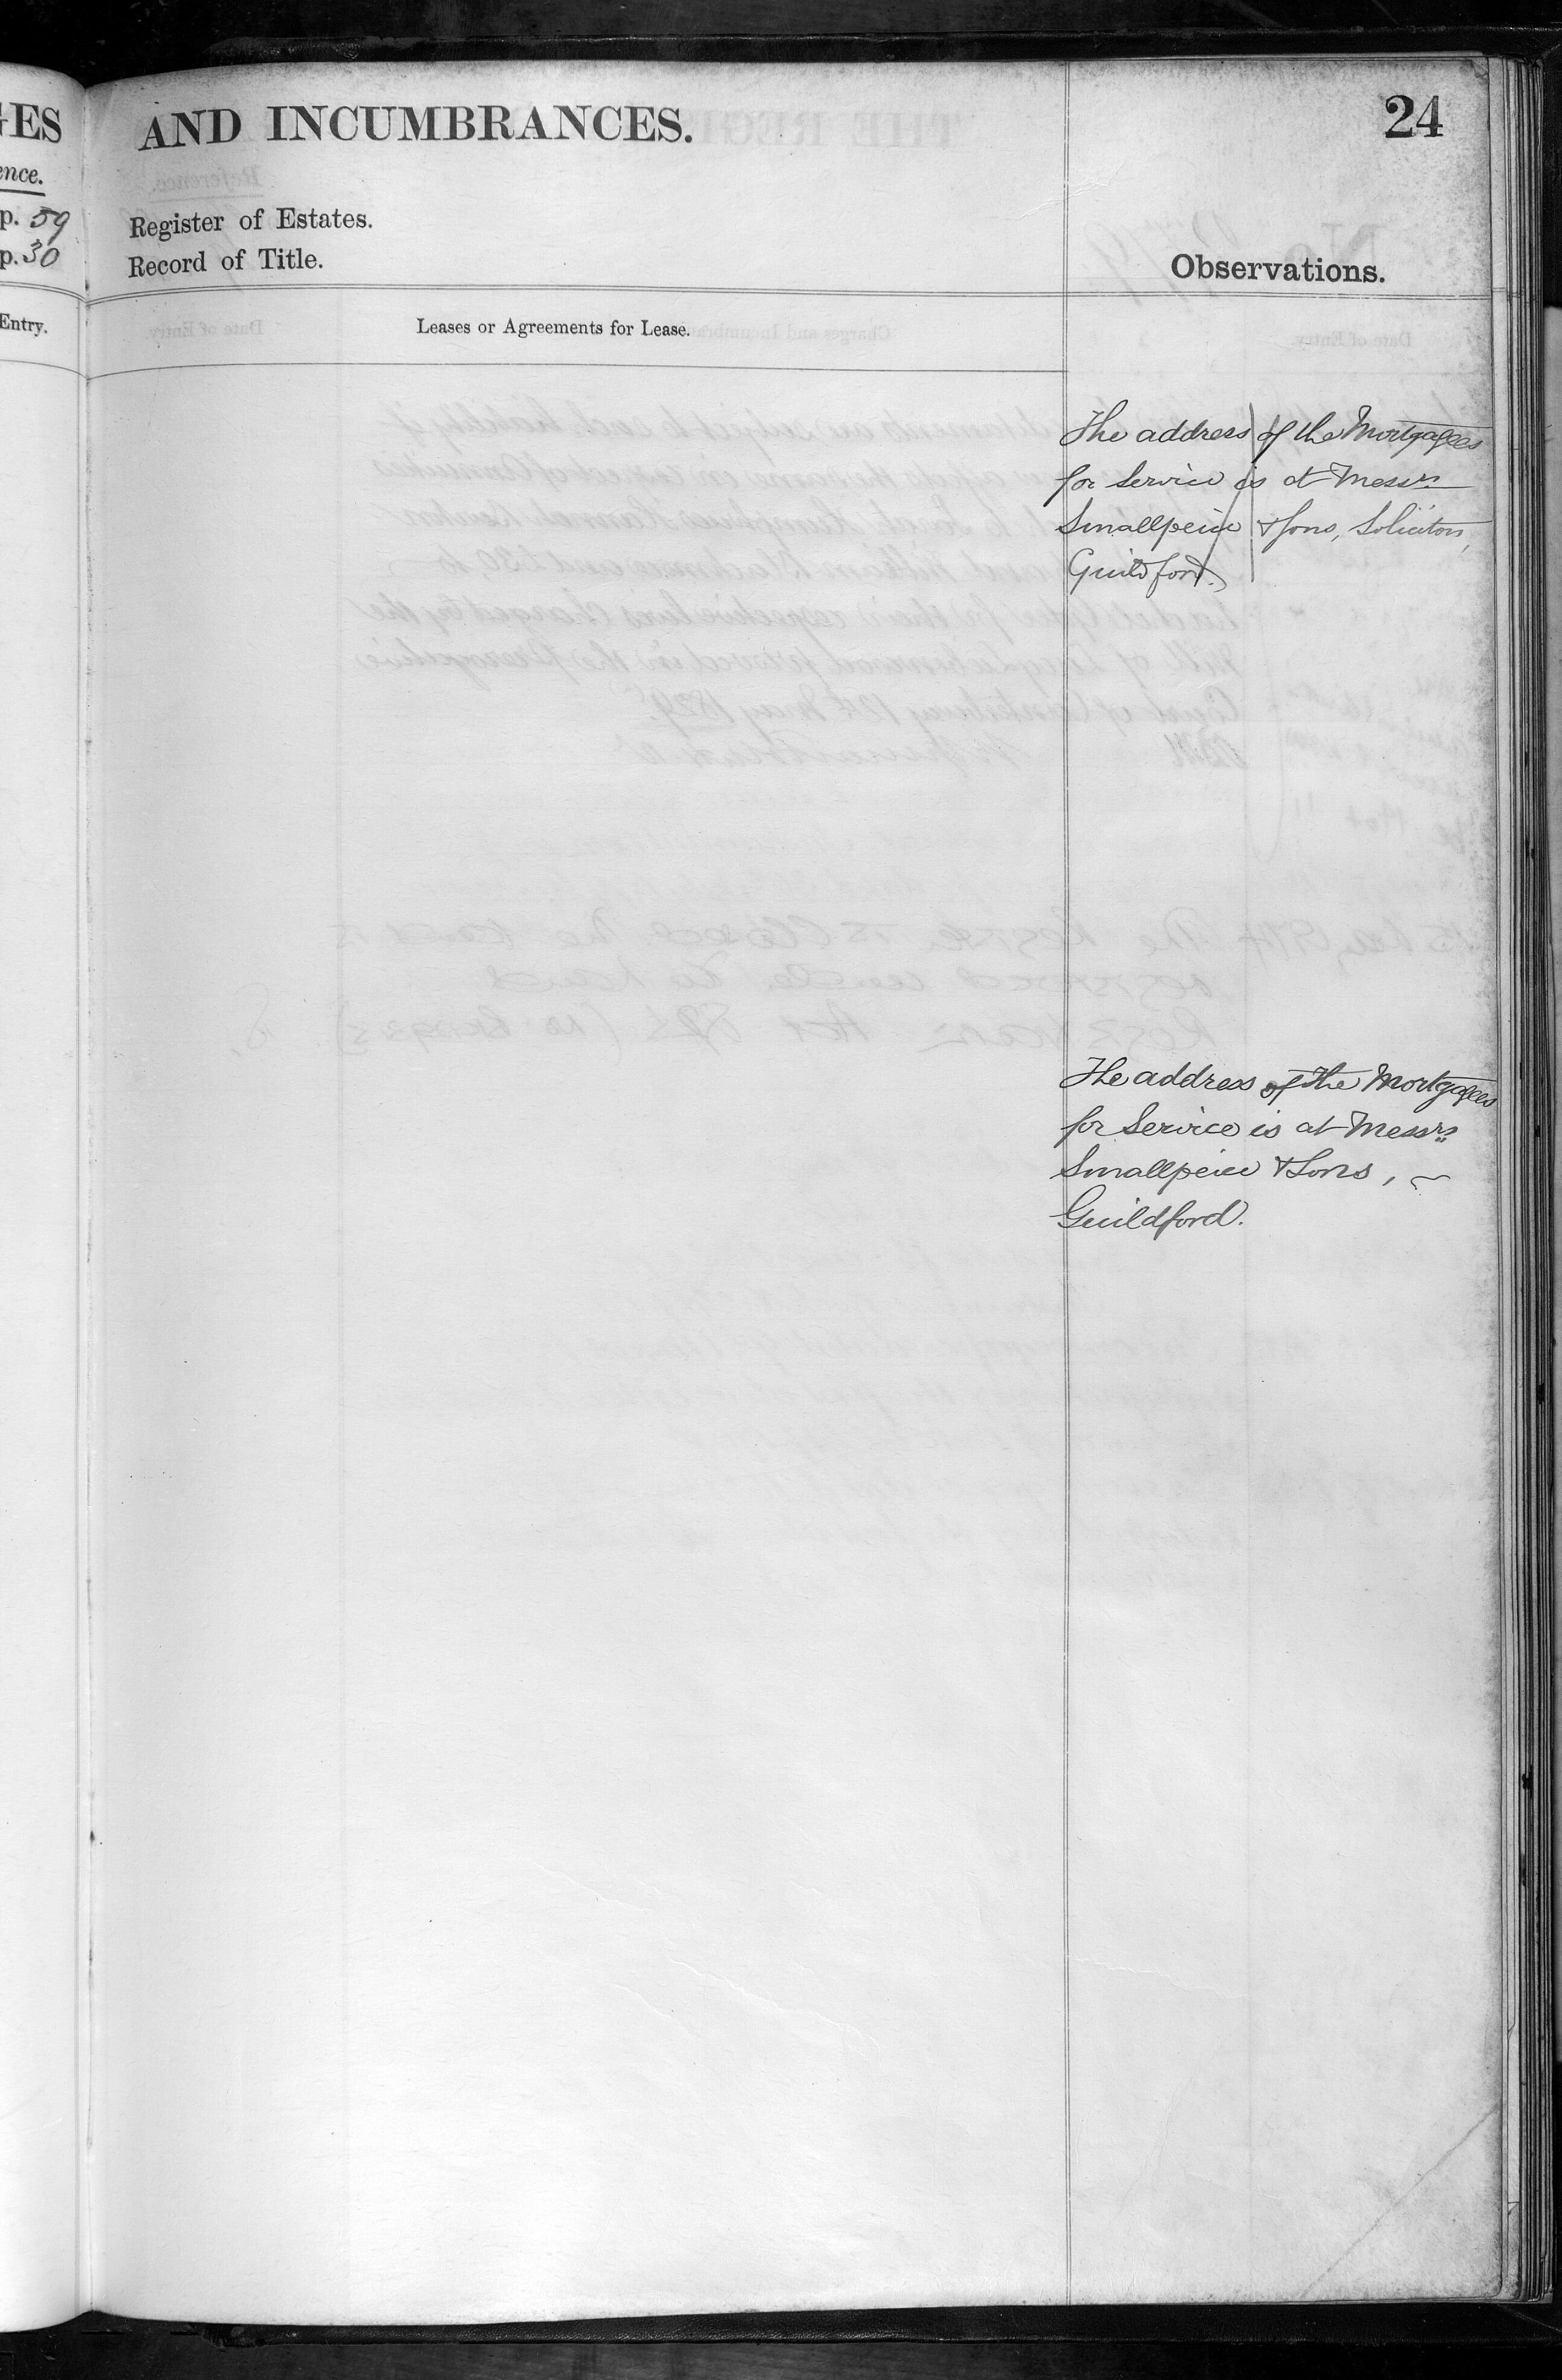 GES
ence.
p. 59
p. 30
Entry.
AND INCUMBRANCES.
24
Register of Estates.
Record of Title.
Observations.
Leases or Agreements for Lease.
The address of the Mortgagees
for Service is at Messrs
Smallpeice & Sons, Solicitors,
Guildford.
The address of the Mortgagees
for Service is at Messrs
Smallpeice & Sons, ~
Guildford.